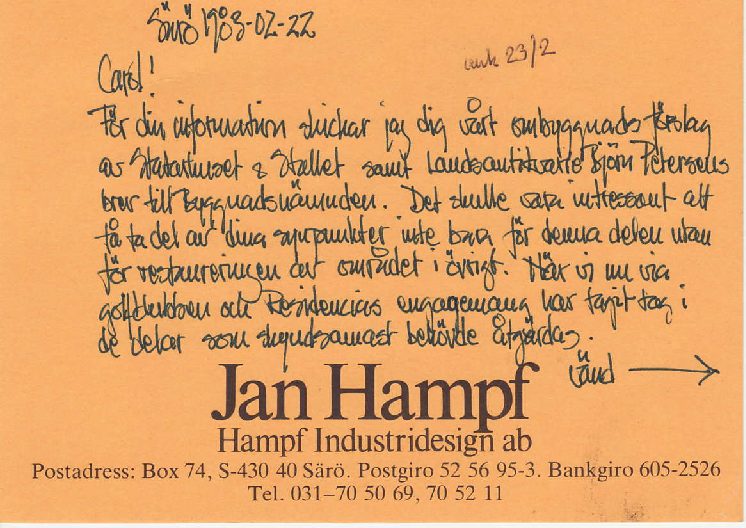 Särö 1983-02-22
ank 23/2
Carol!
För din information skickar jag dig vårt ombyggnadsförslag
av Statarhuset & Stallet samt Landsantikvarie Björn Petersens
brev till Byggnadsnämnden. Det skulle vara intressant att
få ta del av dina synpunkter inte bara för denna delen utan
för restaureringen av området i övrigt. När vi nu via
golfklubben och Residencias engagemang har tagit tag i
de delar som skyndsamast behövde åtgärdas.
Vänd →
Jan Hampf
Hampf Industridesign ab
Postadress: Box 74, S-430 40 Särö. Postgiro 52 56 95-3. Bankgiro 605-2526
Tel. 031–70 50 69, 70 52 11